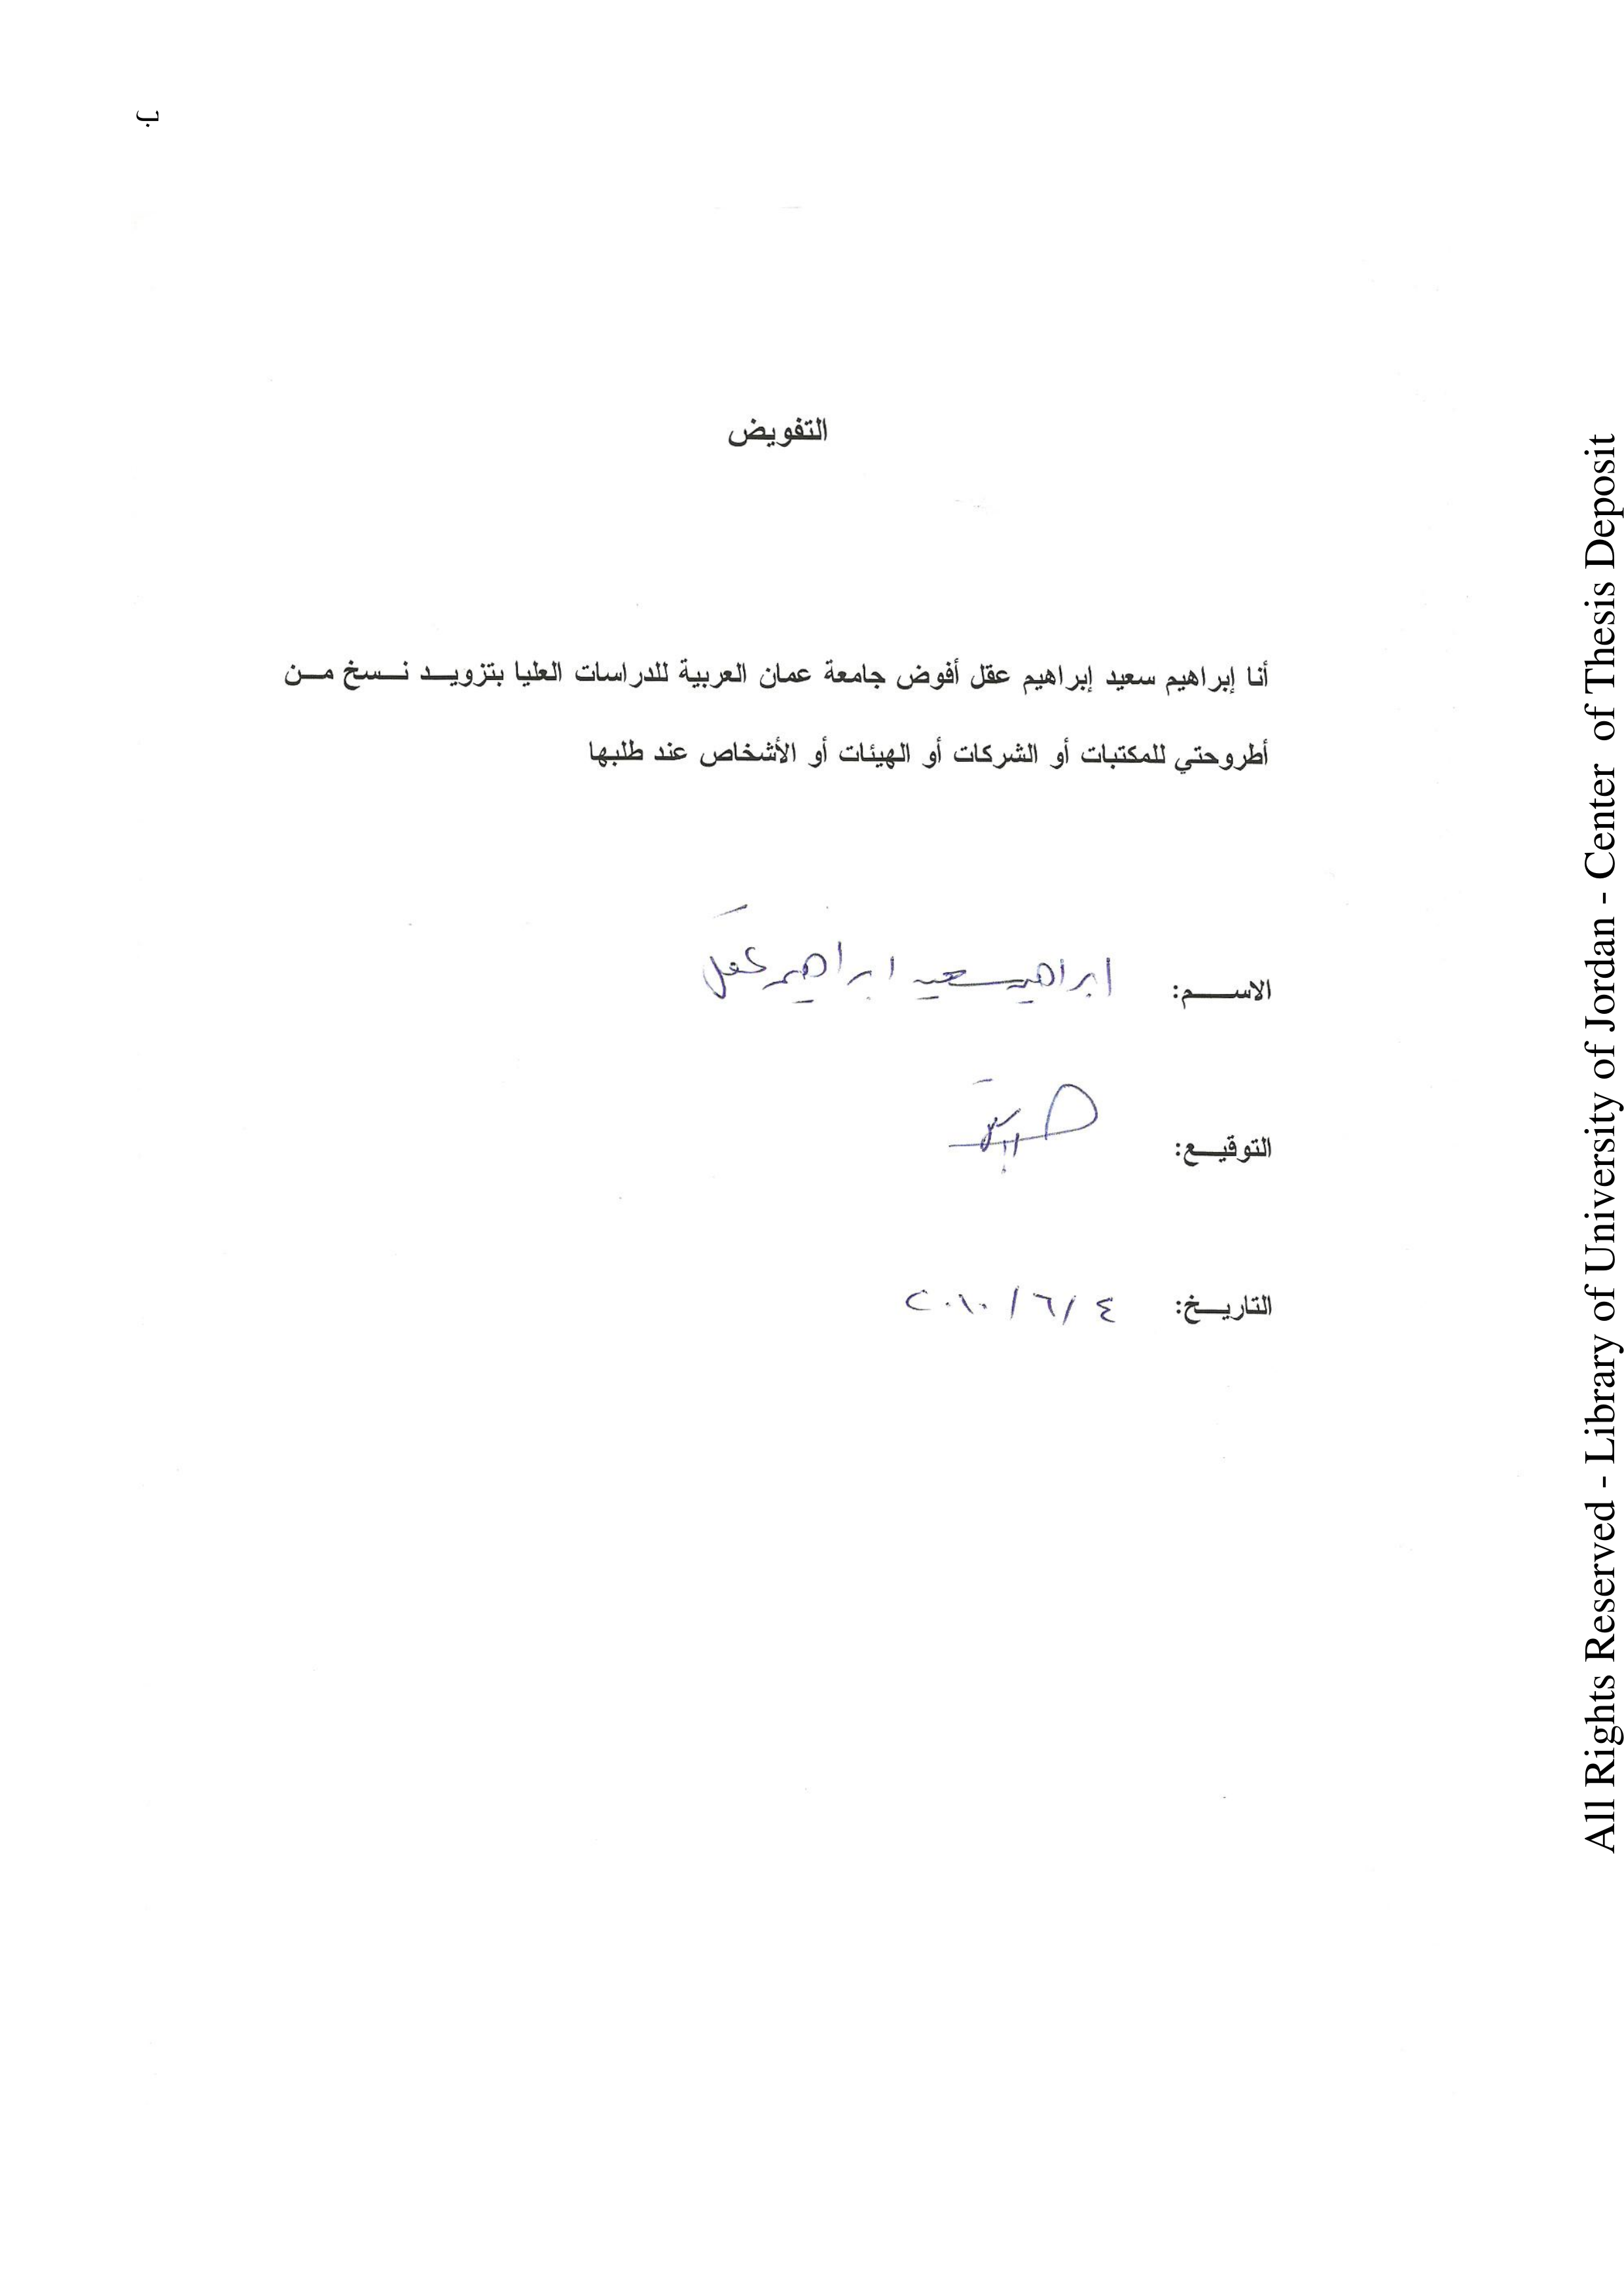 ب
التفويض
أنا إبراهيم سعيد إبراهيم عقل أفوض جامعة عمان العربية للدراسات العليا بتزويد نسخ من
أطروحتي للمكتبات أو الشركات أو الهيئات أو الأشخاص عند طلبها
الاسم: ابراهيم سعيد ابراهيم عقل
التوقيع:
التاريخ: ٤ / ٦ / ٢٠١٠
All Rights Reserved - Library of University of Jordan - Center of Thesis Deposit